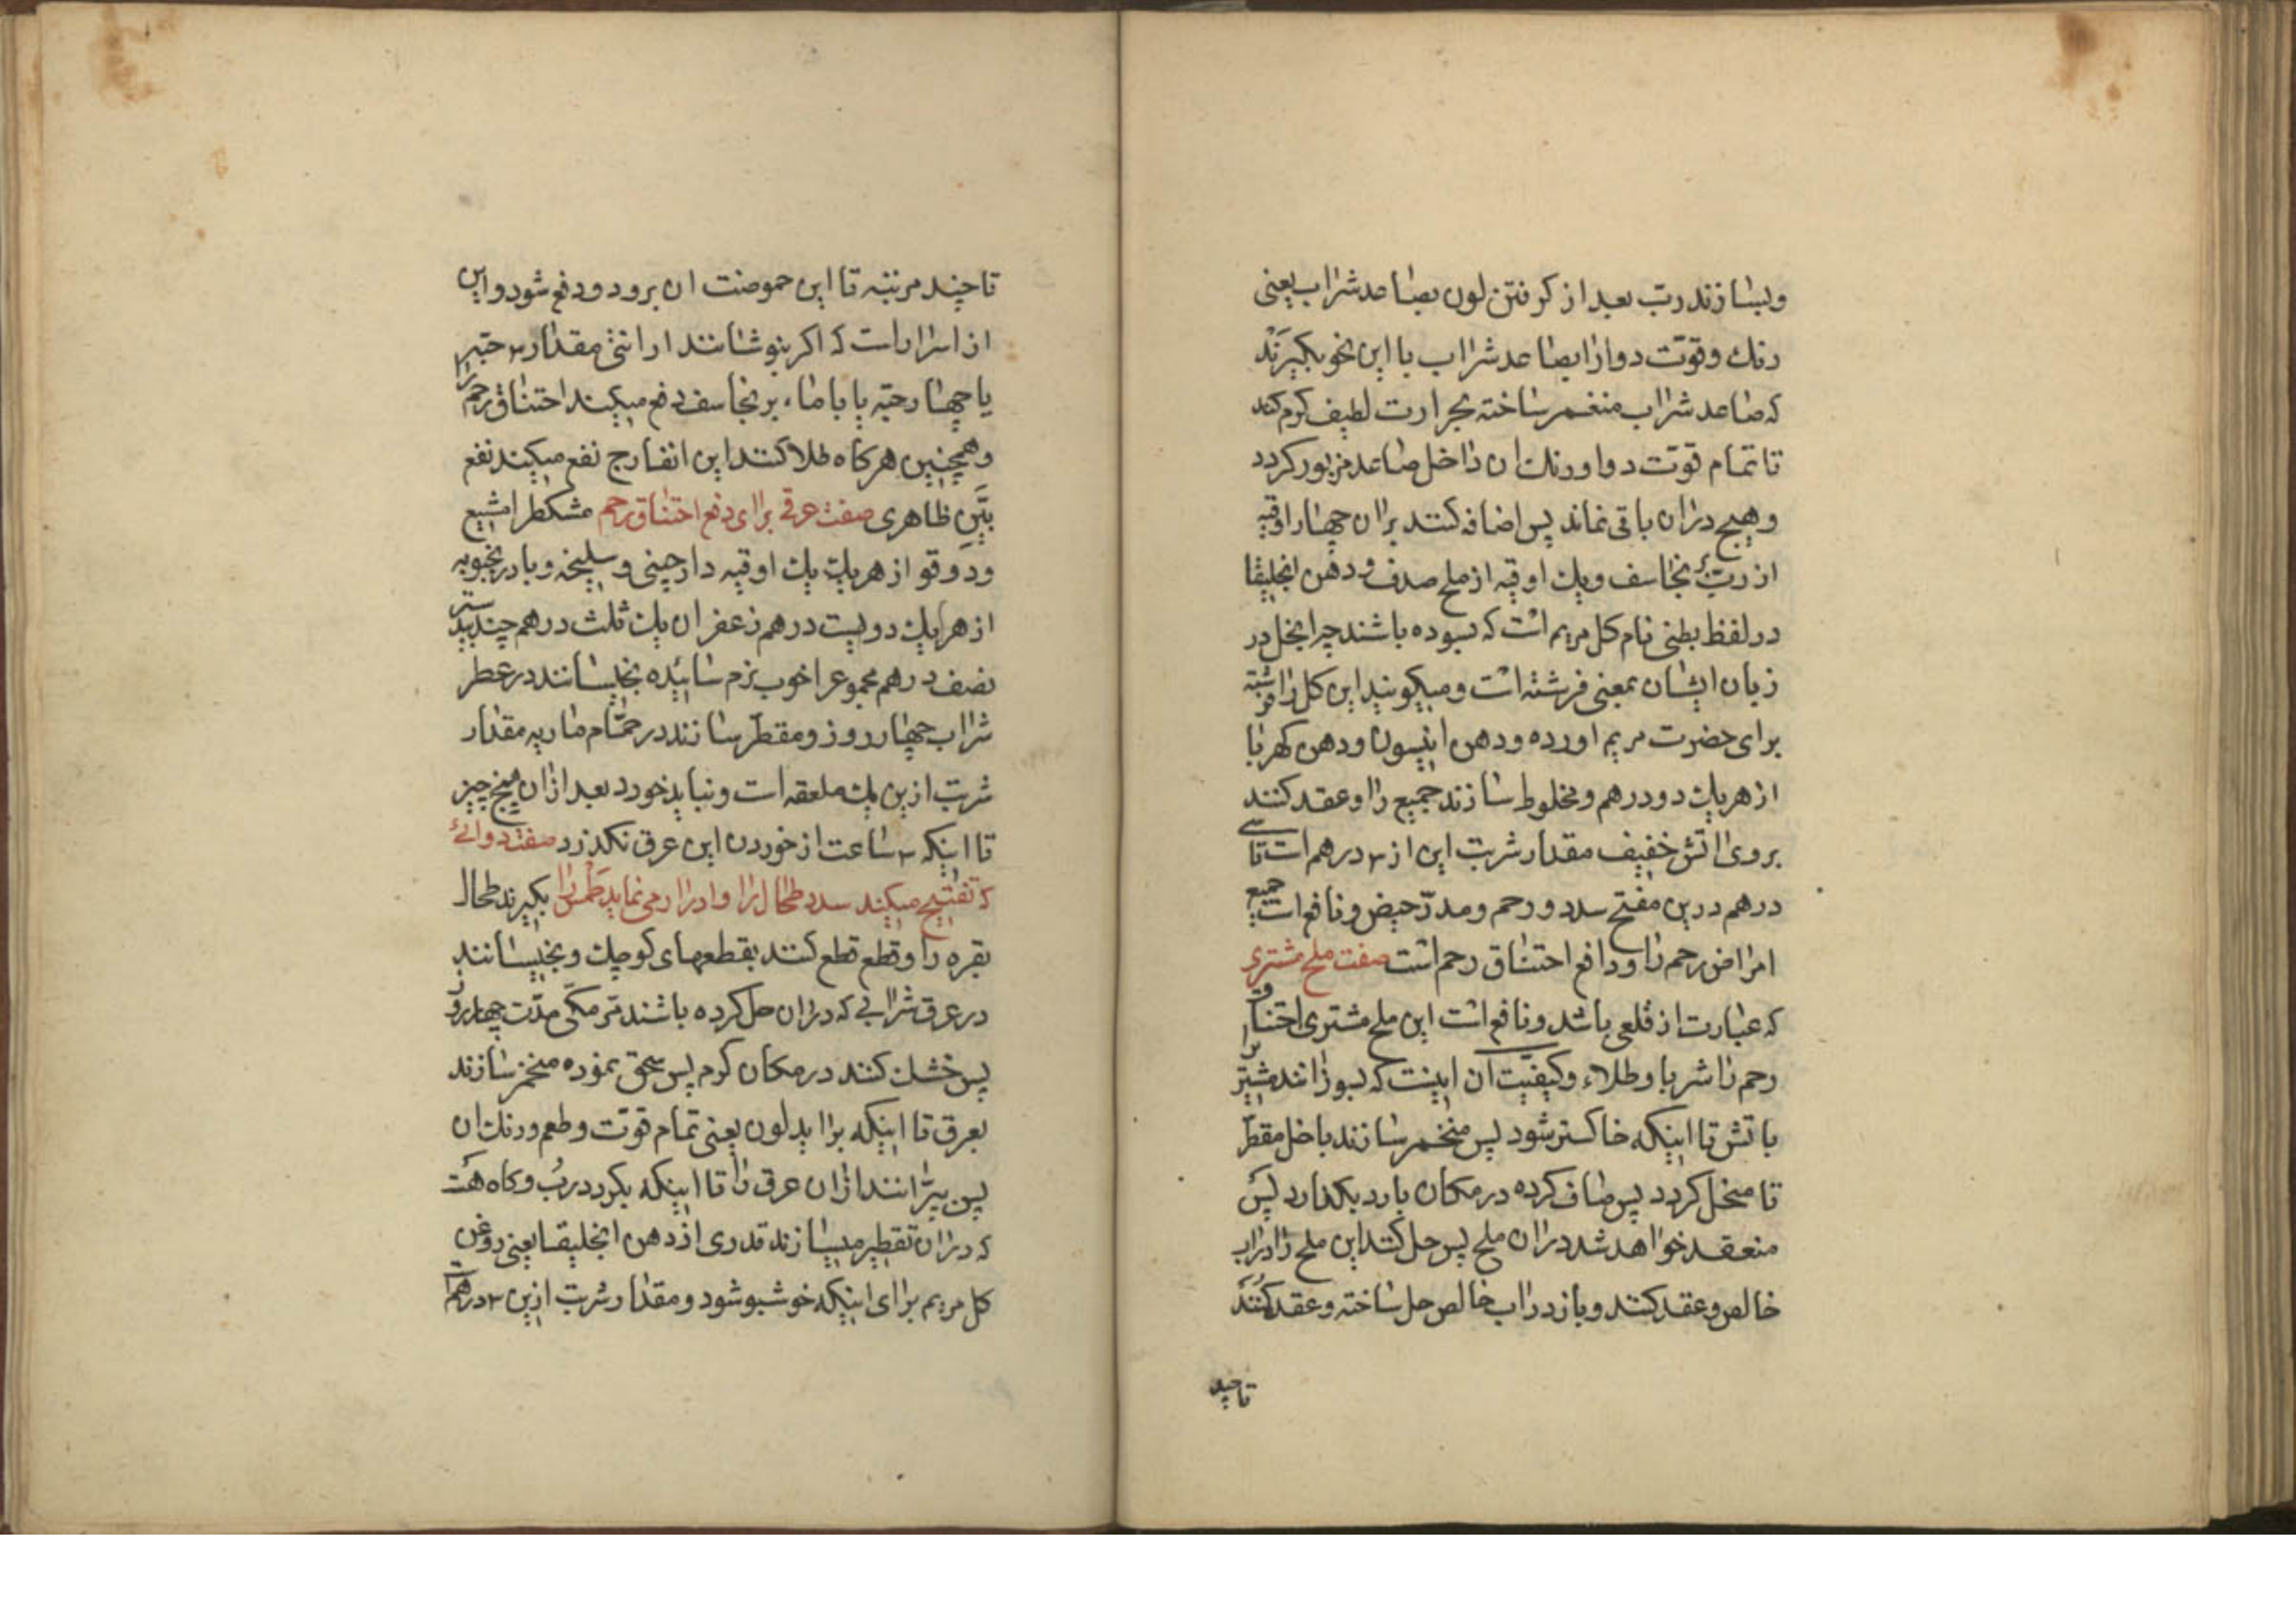 وبسازند رب بعد از کرفتن لون بصاعد شراب یعنی
رنك وقوّت دوارا بصاعد شراب با این نحو بکیرند
که صاعد شراب منغمر ساخته بحرارت لطیف کرم کند
تا تمام قوّت دوا ورنك ان داخل صاعد مزبور کردد
وهیچ دران باقی نماند پس اضافه کنند بران چهار اوقیه
از رب برنجاسف ویك اوقیه از ملح صدف ودهن انجلیقا
در لفظ بطنی نام کل مریم است که بسوده باشند چرا نجل در
زبان ایشان بمعنی فرشته است ومیکویند این کل را فرشته
برای حضرت مریم اورده ودهن انیسون ودهن کهربا
از هریك دو درهم ومخلوط سازند جمیع را وعقد کنند
بروی اتش خفیف مقدار شربت این از ۲ درهم است تا سی
درهم درین مفتح سدد ورحم ومدرّ حیض ونافع است جمیع
امراض رحم را ودافع اختناق رحم است صفت ملح مشتری
که عبارت از قلعی باشد ونافع است این ملح مشتری اختناق
رحم را شربا وطلاء وکیفیّت ان اینست که بسوزانند مشتری را
باتش تا اینکه خاکستر شود پس منخمر سازند باخل مقطّر
تا منحل کردد پس صاف کرده در مکان بارد بکذارد پس
منعقد خواهد شد دران ملح پس حل کنند این ملح را دراب
خالص وعقد کنند وباز دراب خالص حل ساخته وعقد کنند
تا چند
تا چند مرتبه تا این حموضت ان برود ودفع شود واین
از اسرار است که اکر بنوشانند ارانثی مقدار ۳ حبّه
یا چهار حبّه یا باماء برنجاسف دفع میکند اختناق رحم را
وهمچنین هر کاه طلا کنند این انفارج نفع میکند نفع
بیّن ظاهری صفت عرقی برای دفع اختناق رحم مشکطرامشیع
ودوقو از هریك یك اوقیه دارچینی وسلیخه وبادرنجبویه
از هریك دویست درهم زعفران یك ثلث درهم جندبیدستر
نصف درهم مجموع را خوب نرم سائیده بخیسانند در عطر
شراب چهار روز ومقطّر سازند در حمّام ماریه مقدار
شربت ازین یك ملعقه است ونباید خورد بعد ازان هیچ چیز
تا اینکه ۳ ساعت از خوردن این عرق نکذرد صفت دوائی
که تفتیح میکند سدد طحال را وادرار می نماید طمث را بکیرند طحال
بقره را وقطع قطع کنند بقطعهای کوچك وبخیسانند
در عرق شرابی که دران حل کرده باشند مرّ مکّی مدّت چهار روز
پس خشك کنند در مکان کرم پس سحق نموده منخمر سازند
بعرق تا اینکه براید لون یعنی تمام قوّت وطعم ورنك ان
پس بپرانند ازان عرق را تا اینکه بکردد ربّ وکاه هست
که دران تقطیر میسازند قدری از دهن انجلیقا یعنی روغن
کل مریم برای اینکه خوشبو شود ومقدار شربت ازین ۲ درهم است